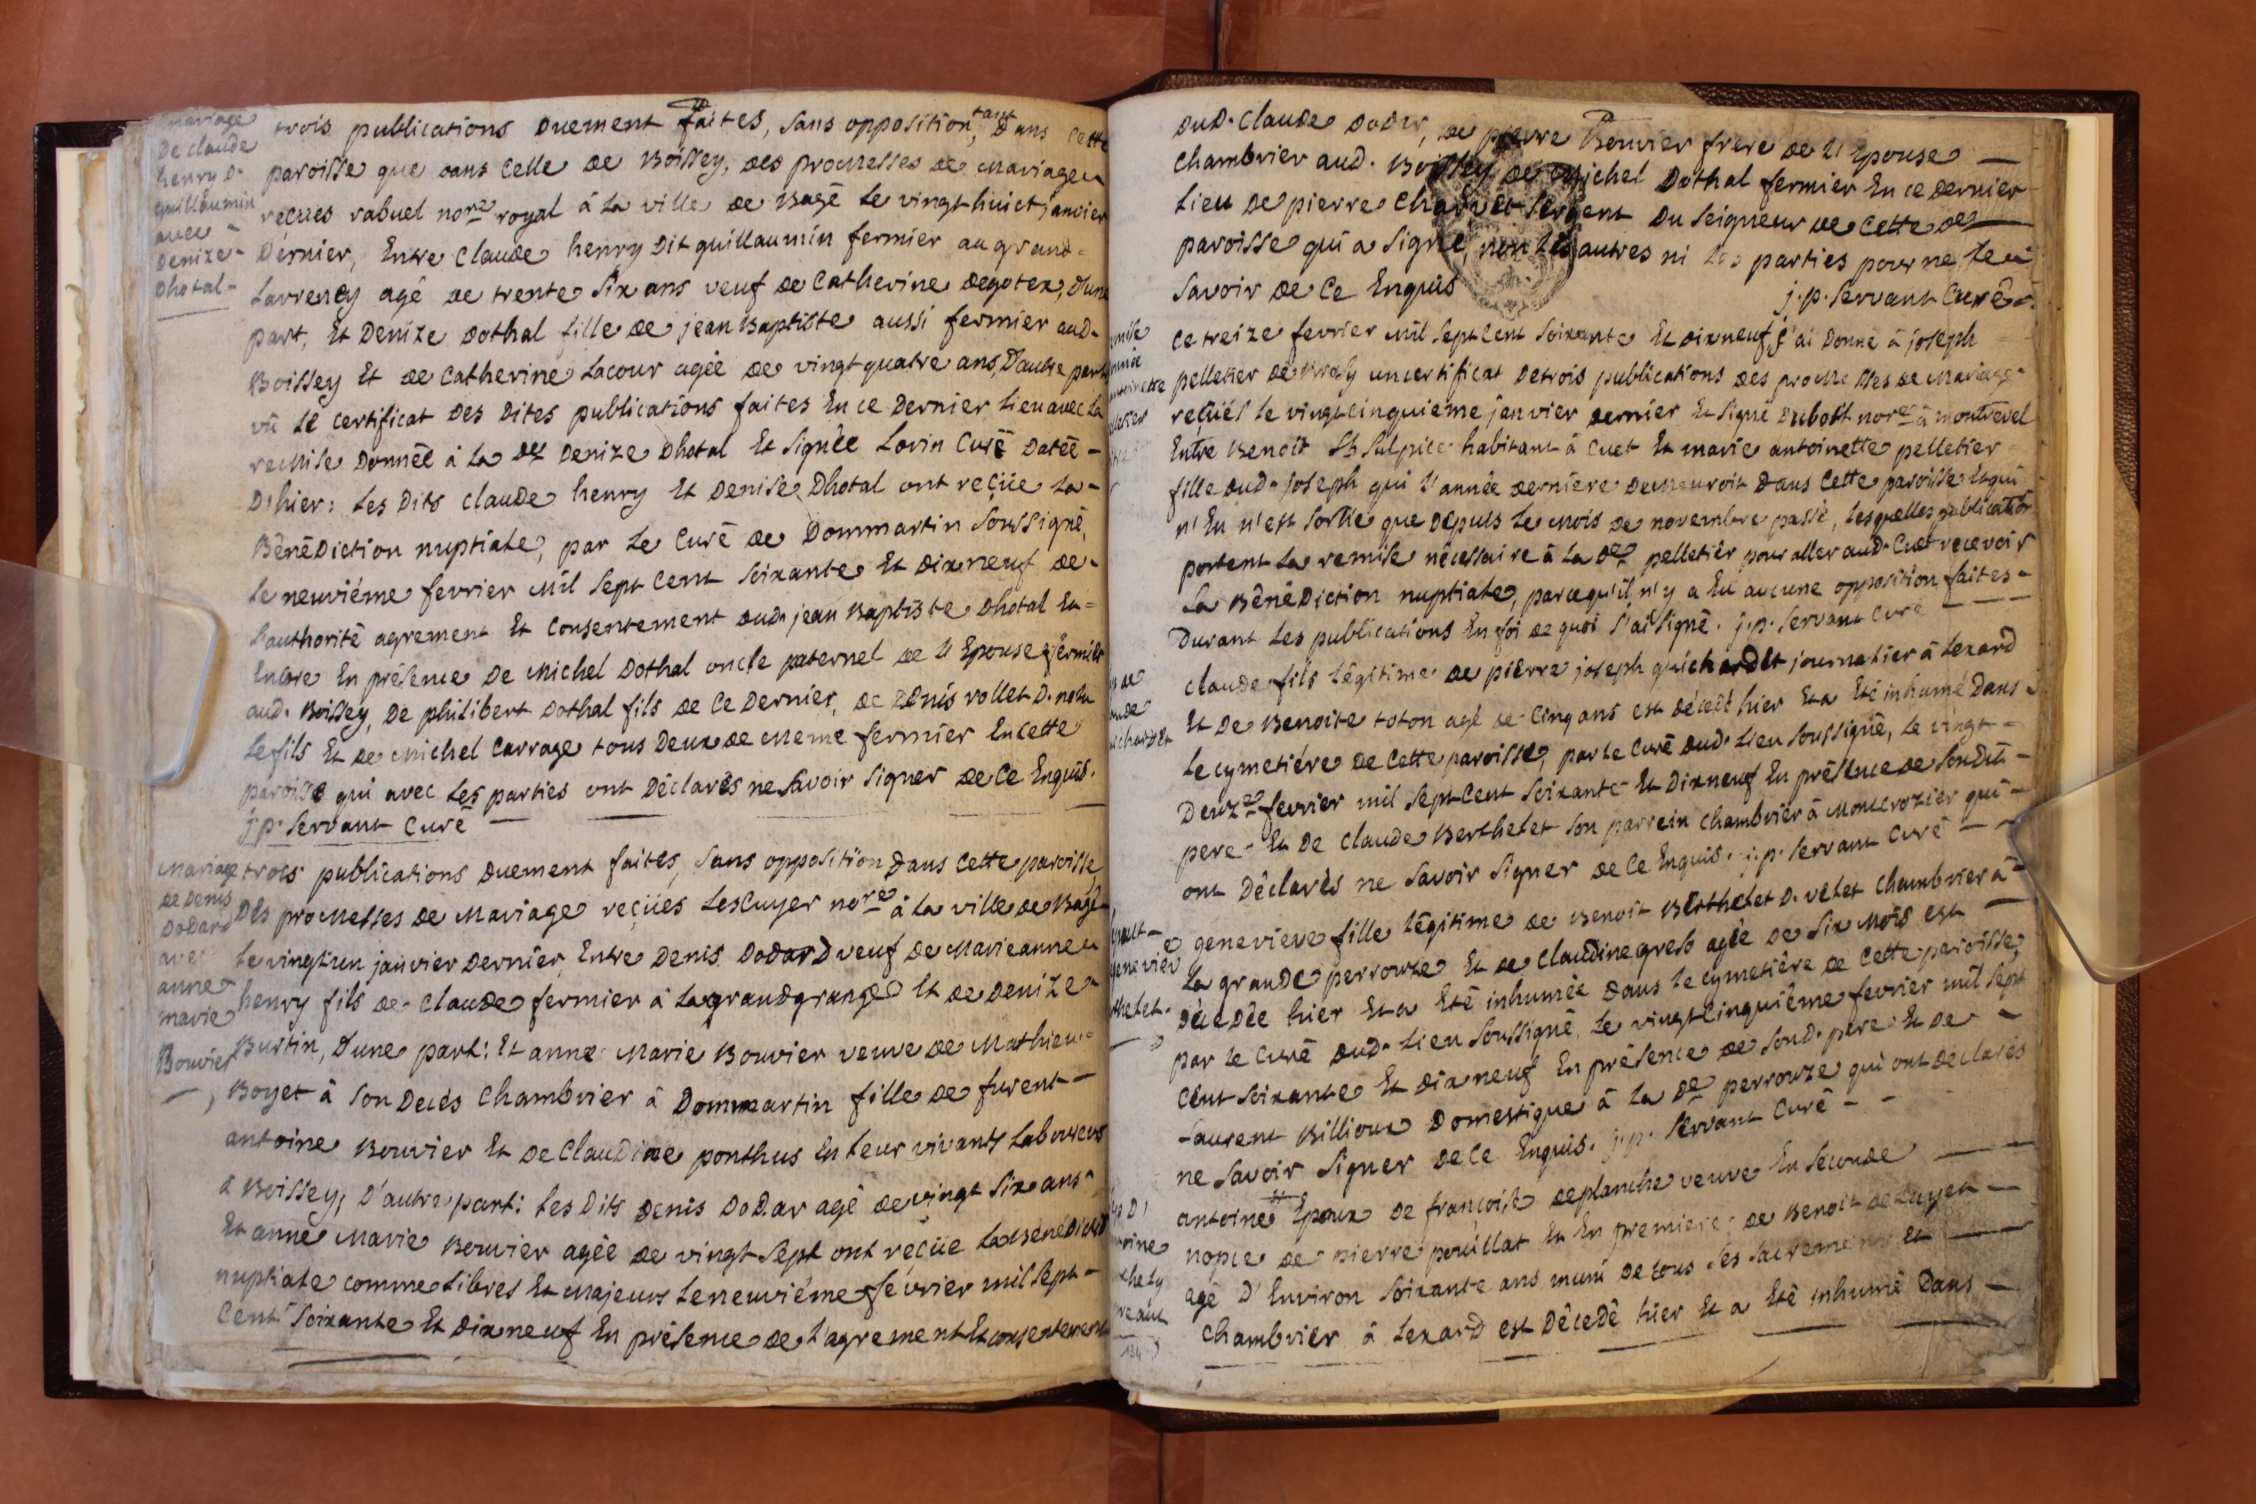 mariage
De claude
henry D.
guillaumin
avec
Denize
Dhotal
trois publications Duement faites, sans opposition, tant Dans cette
paroisse que dans celle de Boissey, des promesses de mariage
reçues rabuel nore royal à la ville de Bagé le vingt huict janvier
Dernier, Entre claude henry Dit guillaumin fermier au grand
Lavrency agé de trente six ans veuf de catherine degotex, D'une
part, Et Denize Dothal fille de jean Baptiste aussi fermier aud.
Boissey Et de catherine Lacour agée de vingt quatre ans, D'autre part
vû le certificat Des Dites publications faites En ce Dernier lieu avec la
remise Donnée à la De Denize Dhotal Et signée Lorin Curé Datée
D'hier: Les Dits claude henry Et Denise Dhotal ont reçüe la
Bénédiction nuptiale, par le Curé de Dommartin soussigné,
le neuviéme fevrier mil sept cent soixante Et dixneuf de
l'authorité agrement Et consentement dud. jean Baptiste Dhotal En
Encore En présence De Michel Dothal oncle paternel de l'Epouse fermier
aud. Boissey, De philibert Dothal fils de ce Dernier, de Denis vollet D.
le fils Et de michel Carrage tous Deux de meme fermier En cette
paroisse qui avec les parties ont Déclarés ne savoir signer de ce Enquis.
j.p. servant curé
Mariage
de Denis
Dodard
avec
anne
marie
Bouvier
trois publications Duement faites, sans opposition Dans cette paroisse,
Des promesses de mariage reçües Lescuyer nore à la ville de Bagé
le vingt un janvier Dernier, Entre Denis Dodard veuf de Marieanne
henry fils de claude fermier à la grand grange Et de Denize
Burtin, D'une part: Et anne Marie Bouvier veuve de Mathieu
Boyet à son Decés Chambrier à Dommartin fille de furent
antoine Bouvier Et de Claudine ponthus En leur vivants Laboureurs
à Boissey, D'autre part: Les Dits Denis Dodar agé de vingt six ans
Et anne Marie Bouvier agée de vingt sept ont reçüe la Bénédiction
nuptiale comme libres Et majeurs le neuviéme février mil sept
cent soixante Et dixneuf En présence de l'agrement Et consentement
Dud. Claude Dodar, de pierre Bouvier frere de l'Epouse
Chambrier aud. Boissey de Michel Dothal fermier En ce Dernier
lieu De pierre Charvet sergent Du seigneur de cette De
paroisse qui a signé, non les autres ni les parties pour ne le
savoir de ce Enquis
j.p. servant Curé
ce treize fevrier mil sept cent soixante Et dixneuf, j'ai Donné à joseph
pelletier de un certificat De trois publications des promesses de mariage
reçüés le vingt cinquieme janvier dernier Et signé Dubost nore à montrevel
Entre Benoit St Sulpice habitant à Cuet Et marie antoinette pelletier
fille dud. joseph qui l'année derniere Demeuroit Dans cette paroisse Et qui
n'En n'est sortie que Depuis le mois de novembre passé, lesquelles publications
portent la remise nécessaire à la De pelletier pour aller aud. Cuet recevoir
la Bénédiction nuptiale, parcequ'il n'y a Eü aucune opposition faites
Durant les publications En foi de quoi j'ai signé. j.p. servant curé
claude fils légitime de pierre joseph guichardet journalier à Lexard
Et De Benoite toton agé de cinq ans est décedé hier Et a Eté inhumé Dans
le cymetiére de cette paroisse, par le Curé dud. lieu soussigné, le vingt
Deuze fevrier mil sept cent soixante Et Dixneuf En présence de son Dit
pere Et De Claude Berthelet son parrein chambrier à moncrozier qui
ont Déclarés ne savoir signer de ce Enquis. j.p. servant curé
genevieve fille légitime de Benoit Berthelet D. velet chambrier à
la grande perrouze Et de Claudine greb agée de six mois est
Décedée hier Et a Eté inhumée Dans le cymetiére de cette paroisse,
par le curé dud. lieu soussigné, le vingt cinquiéme fevrier mil sept
cent soixante Et dixneuf En présence de sond. pere Et De
Laurent Billioux Domestique à la De perrouze qui ont declarés
ne savoir signer De ce Enquis. j.p. servant Curé
antoine Epoux De françoise deplanche veuve En seconde
nopce de pierre pouillat Et En premiere de Benoit
agé D'Environ soixante ans muni de tous ses sacremens Et
chambrier à Lexard est Décedé hier Et a Eté inhumé Dans